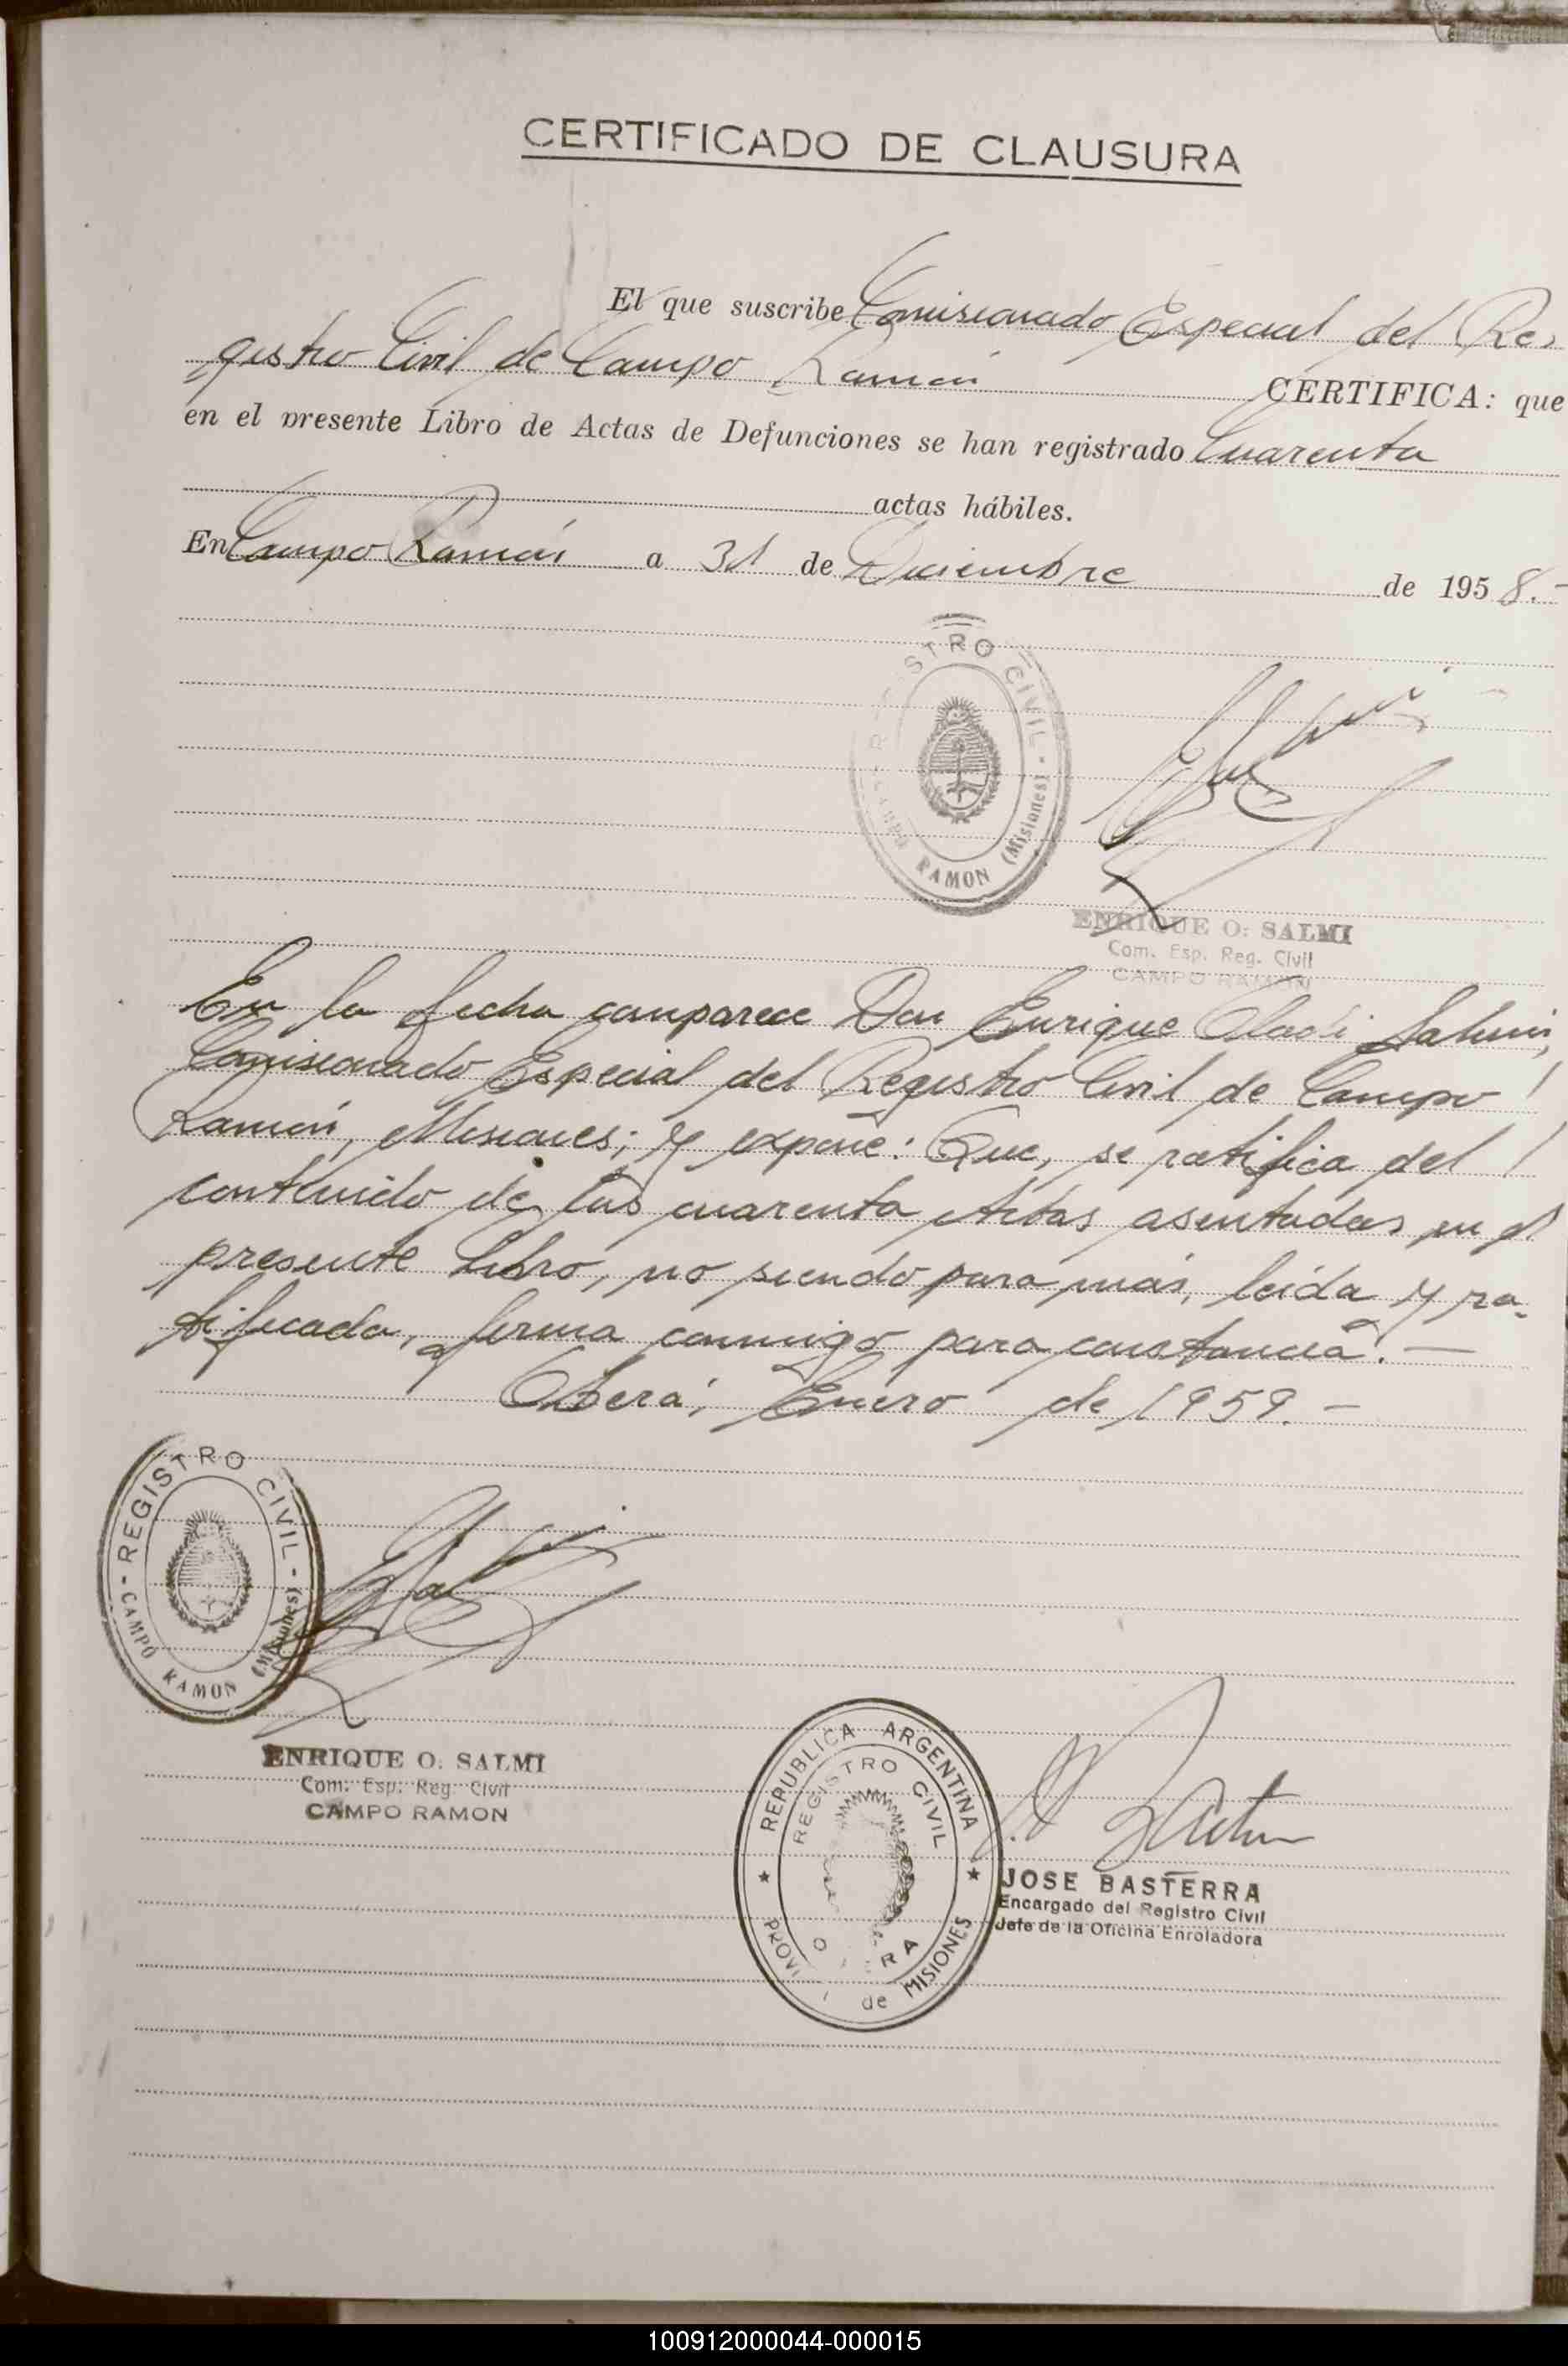 CERTIFICADO DE CLAUSURA
El que suscribe Comisionado Especial del Re-
gistro Civil de Campo Ramón CERTIFICA: que
en el presente Libro de Actas de Defunciones se han registrado Cuarenta
actas hábiles.
En Campo Ramón a 31 de Diciembre de 1958.-
REGISTRO CIVIL - CAMPO RAMON (Misiones) -
ENRIQUE O. SALMI
Com. Esp. Reg. Civil
CAMPO RAMON
En la fecha comparece Don Enrique Salmi,
Comisionado Especial del Registro Civil de Campo
Ramón, Misiones; y expone: Que, se ratifica del
contenido de las cuarenta Actas asentadas en el
presente Libro, no siendo para más, leída y ra-
tificada, firma conmigo para constancia.-
Oberá, Enero de 1959.-
- REGISTRO CIVIL - CAMPO RAMON (Misiones)
ENRIQUE O. SALMI
Com. Esp. Reg. Civil
CAMPO RAMON
REPUBLICA ARGENTINA
REGISTRO CIVIL
de MISIONES
JOSE BASTERRA
Encargado del Registro Civil
Jefe de la Oficina Enroladora
100912000044-000015